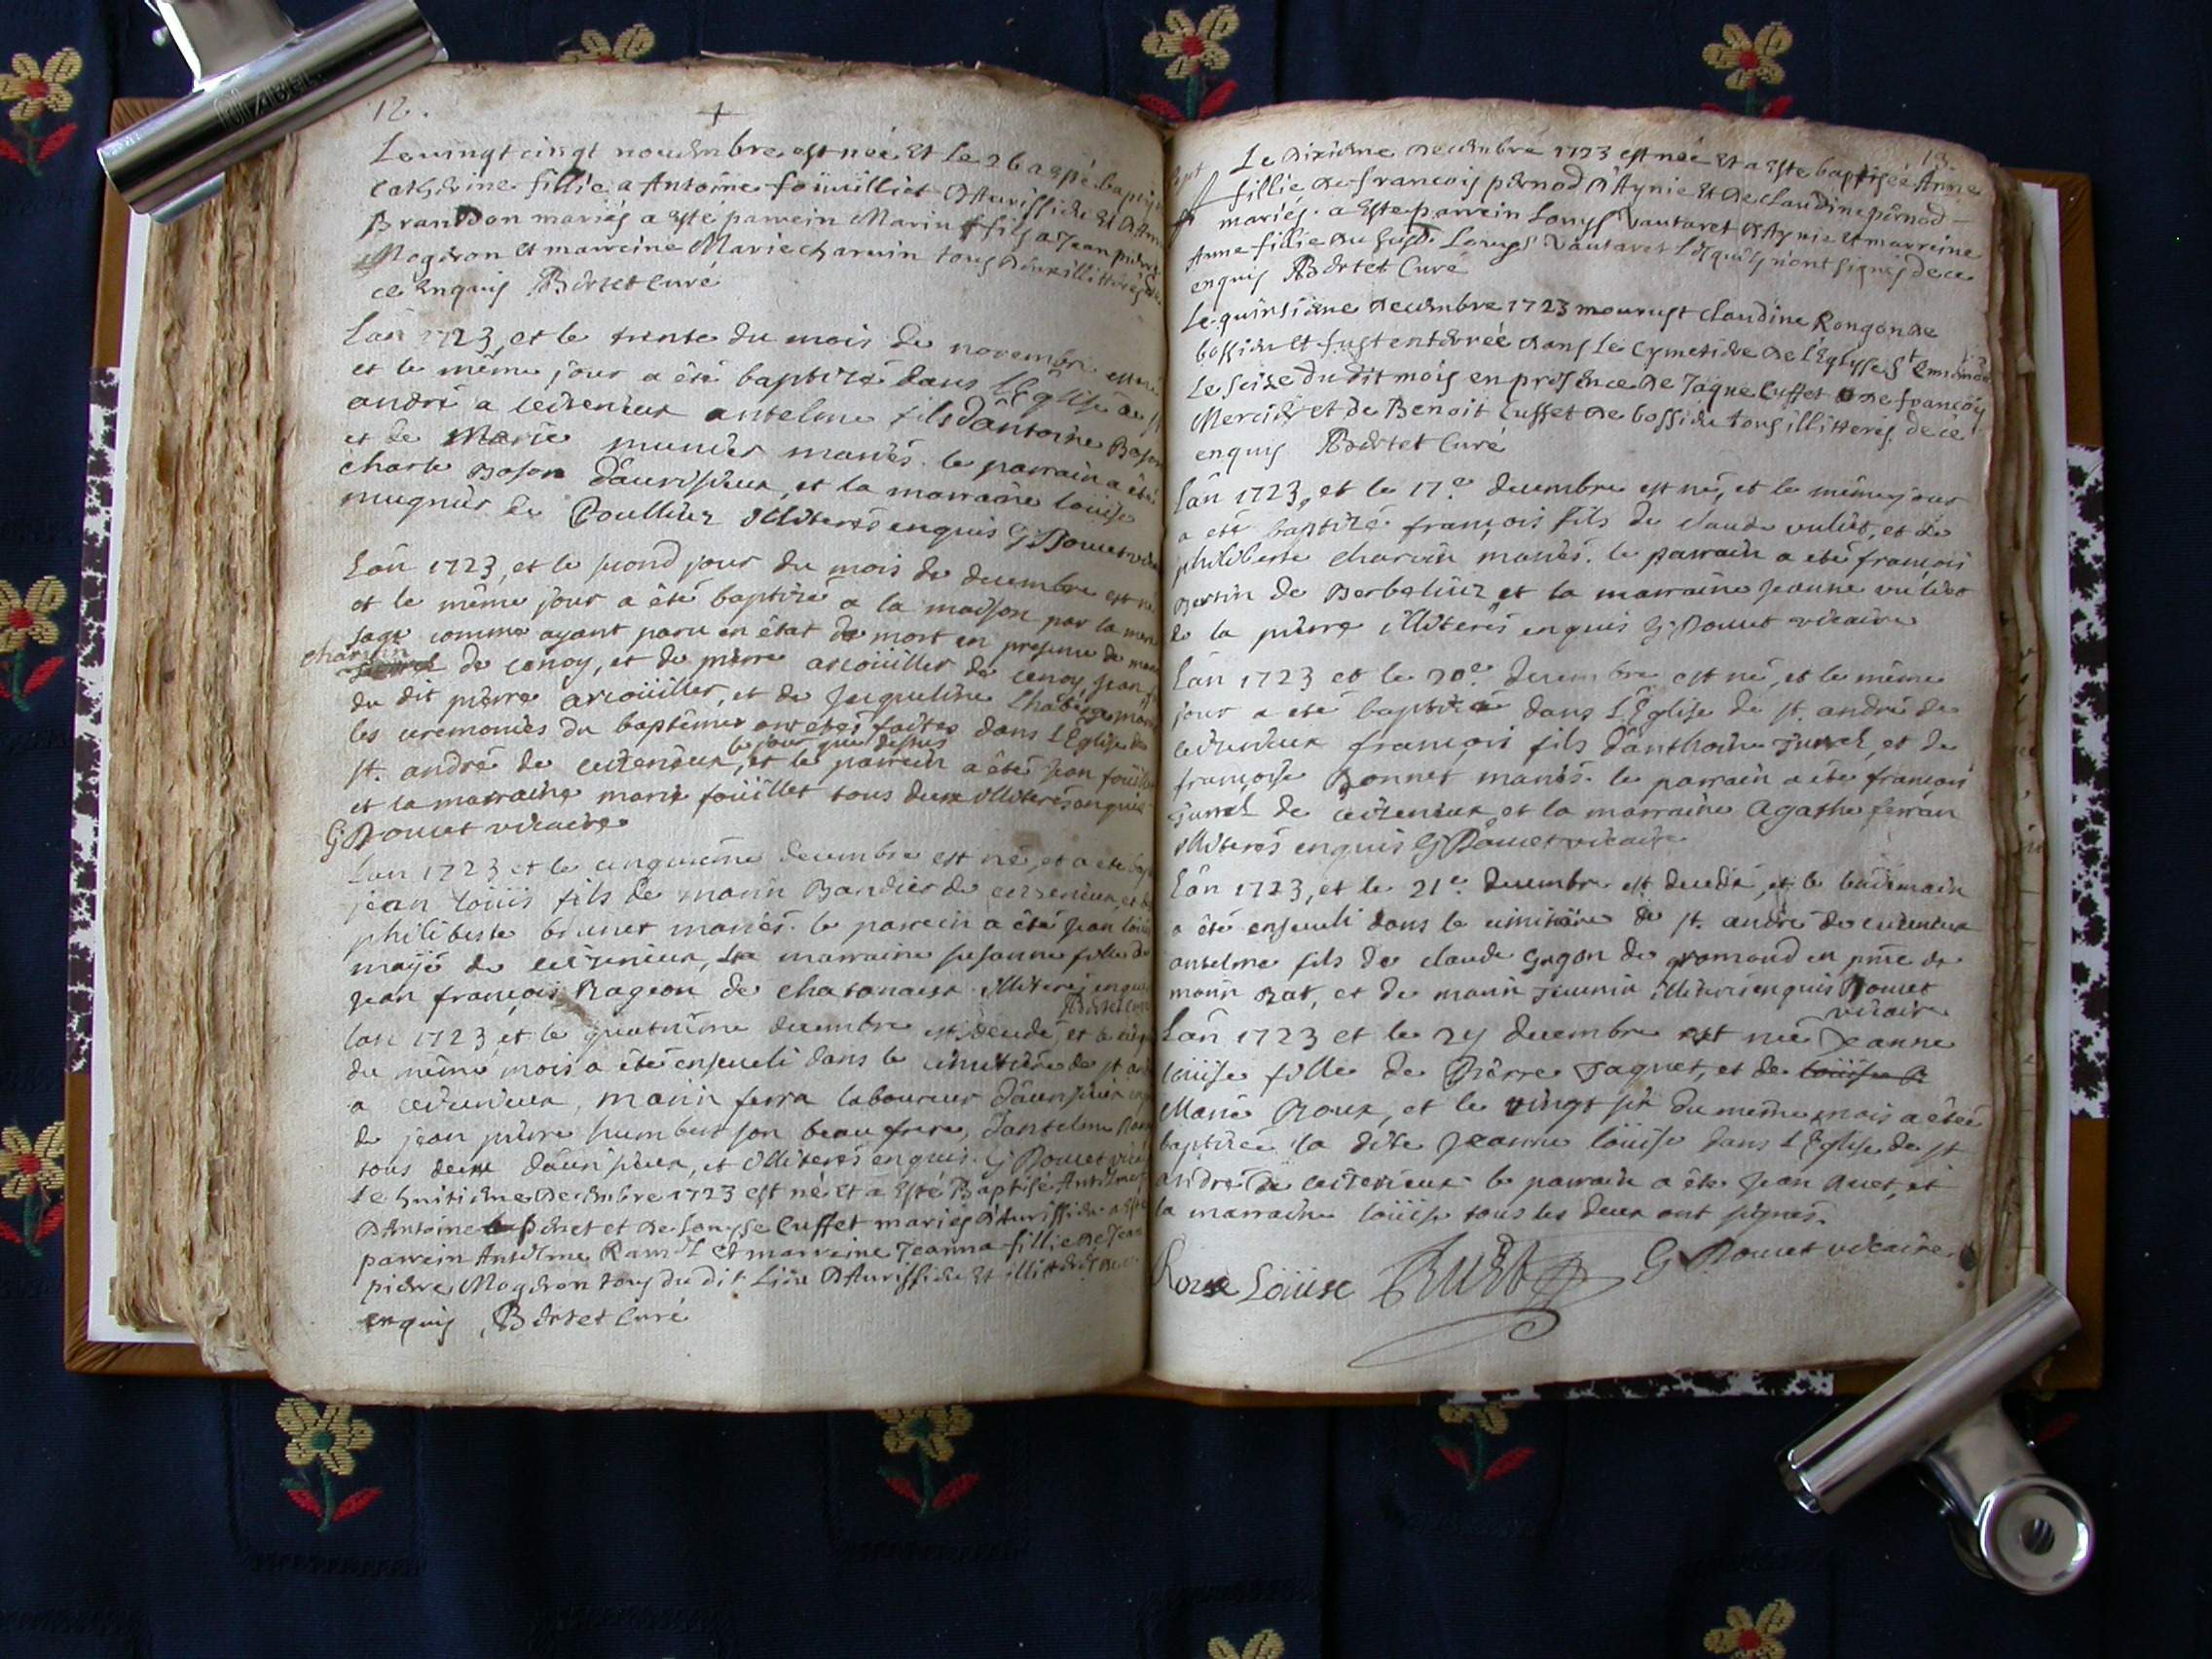 12.
Le vingt cingt novembre est née Et le 26 a esté baptis
Catherine fillie a Antoine foüillièt D'Aurissieu Et D'Ann
Brandon mariés a Esté parrein Marin fils a Jean pierre
Mogeron Et marreine Marie charvin tous deux illitterés de
ce Enquis Bertet Curé
L'an 1723, et le trente du mois de novembre est né
et le même jour a été baptizé dans L'Eglise de st
andré a ceizerieux antelme fils d'antoine Boson
et de Marie munier mariés. le parrain a été
charle Boson d'aurisieux, et la marraine loüise
mugnier de Poullieu illiterés enquis G Doucet vic
L'an 1723, et le second jour du mois de decembre est né
et le même jour a été baptizé a la maison par la mere
sage comme ayant paru en état de mort en presence de
charvin
de cenoy, et de pierre arcoüiller de cenoy, Jean
du dit pierre arcoüiller, et de Jacqueline
les ceremonies du baptême ont etés faites dans L'Eglise de
le jour que dessus
st. andré de ceizerieux, et le parrein a été Jean foüille
et la marraine marie foüillet tous deux illiterés enquis
G Doucet vicaire
L'an 1723 et le cinquieme decembre est né, et a ete bap
jean loüis fils de marin Bandier de ceizerieux, et de
philiberte brunet mariés. le parrein a été Jean loüis
de ceizerieux, la marraine susanne fille de
Jean françois Rageon de chatonaux illiterés enquis
Bertet Curé
L'an 1723, et le quatrieme decembre est decedé, et le cinq
du même mois a été enseveli dans le cimetiere de st and
a ceizerieux, marin ferra laboureur d'aurisieux
de jean pierre humbert son beau frere, d'antelme
tous deux d'aurisieux, et illiterés enquis. G Doucet vic
Le huitieme Decembre 1723 est né Et a Esté Baptisé Antelme
D'Antoine et de Louyse Cuffet mariés D'Aurissieu a Esté
parrein Antelme Ramel Et marreine Jeanna fillie de Jean
pierre Mogeron tous du dit Lieu D'Aurissieu Et illitterés de ce
enquis Bertet Curé
13.
Le Dixieme Decembre 1723 est née Et a Esté baptisée Anne
fillie de francois pernod D'Aynie Et de Claudine pernod
mariés. a Esté parrein Louys Vautaret D'Aynie Et marreine
Anne fillie du susd. Louys Vautaret Lesquels n'ont signés de ce
enquis Bertet Curé
Le quinsieme Decembre 1723 mourust Claudine Rongon de
bossieu Et fust enterrée dans Le Cymetiere de L'Eglysse St
Le Seise du dit mois en presence de Jaque Cuffet de françois
Mercier et de Benoit Cuffet de bossieu tous illitterés de ce
enquis Bertet Curé
L'an 1723, et le 17e decembre est né, et le même jour
a eté baptizé françois fils de claude vuliet, et de
philiberte charvin mariés. le parrain a eté françois
Bertin de Berbelieu et la marraine Jeanne vuliet
de la pierre illiterés enquis G Doucet vicaire
L'an 1723 et le 20e decembre est né, et le même
jour a eté baptizé dans L'Eglise de st. andré de
ceizerieux françois fils d'anthoine Jurrel, et de
françoise Bonnet mariés. le parrain a ete françois
Jurrel de ceizerieux, et la marraine agathe ferran
illiterés enquis G Doucet vicaire
L'an 1723, et le 21e decembre est decedé, et le lendemain
a été enseveli dans le cimitiere de st. andré de ceizerieux
antelme fils de claude Gogon de gromond en pnce de
marin Rat, et de marin illiterés enquis Doucet
vicaire
L'an 1723 et le 24 decembre est née Jeanne
loüise fille de Pierre Jaquet, et de
Marie Roux, et le vingt six du même mois a été
baptizée la dite Jeanne loüise dans L'Eglise de st
andré de ceizerieux le parrain a été Jean
la marraine loüise tous les deux ont signés.
Roux Loüise G Doucet vicaire